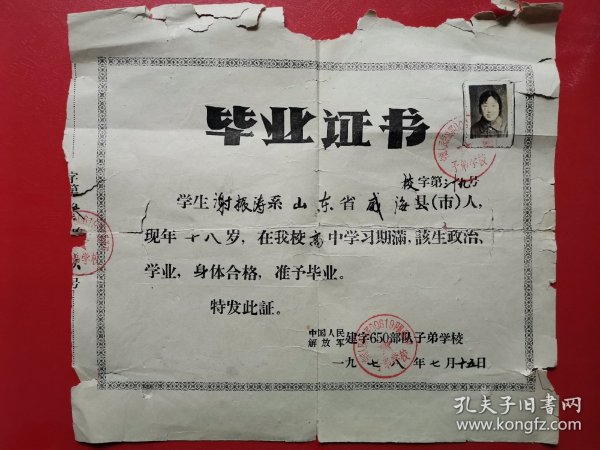 毕业证书
校字第卅九号
学生 谢振涛系 山东省 威海县(市)人,
现年 十八 岁,在我校 高 中学习期满,該生政治,
学业,身体合格,准予毕业。
特发此証。
中国人民解放军 建字650部队子弟学校
一九七八年七月十五日
字第
号
孔夫子旧书网
www.kongfz.com